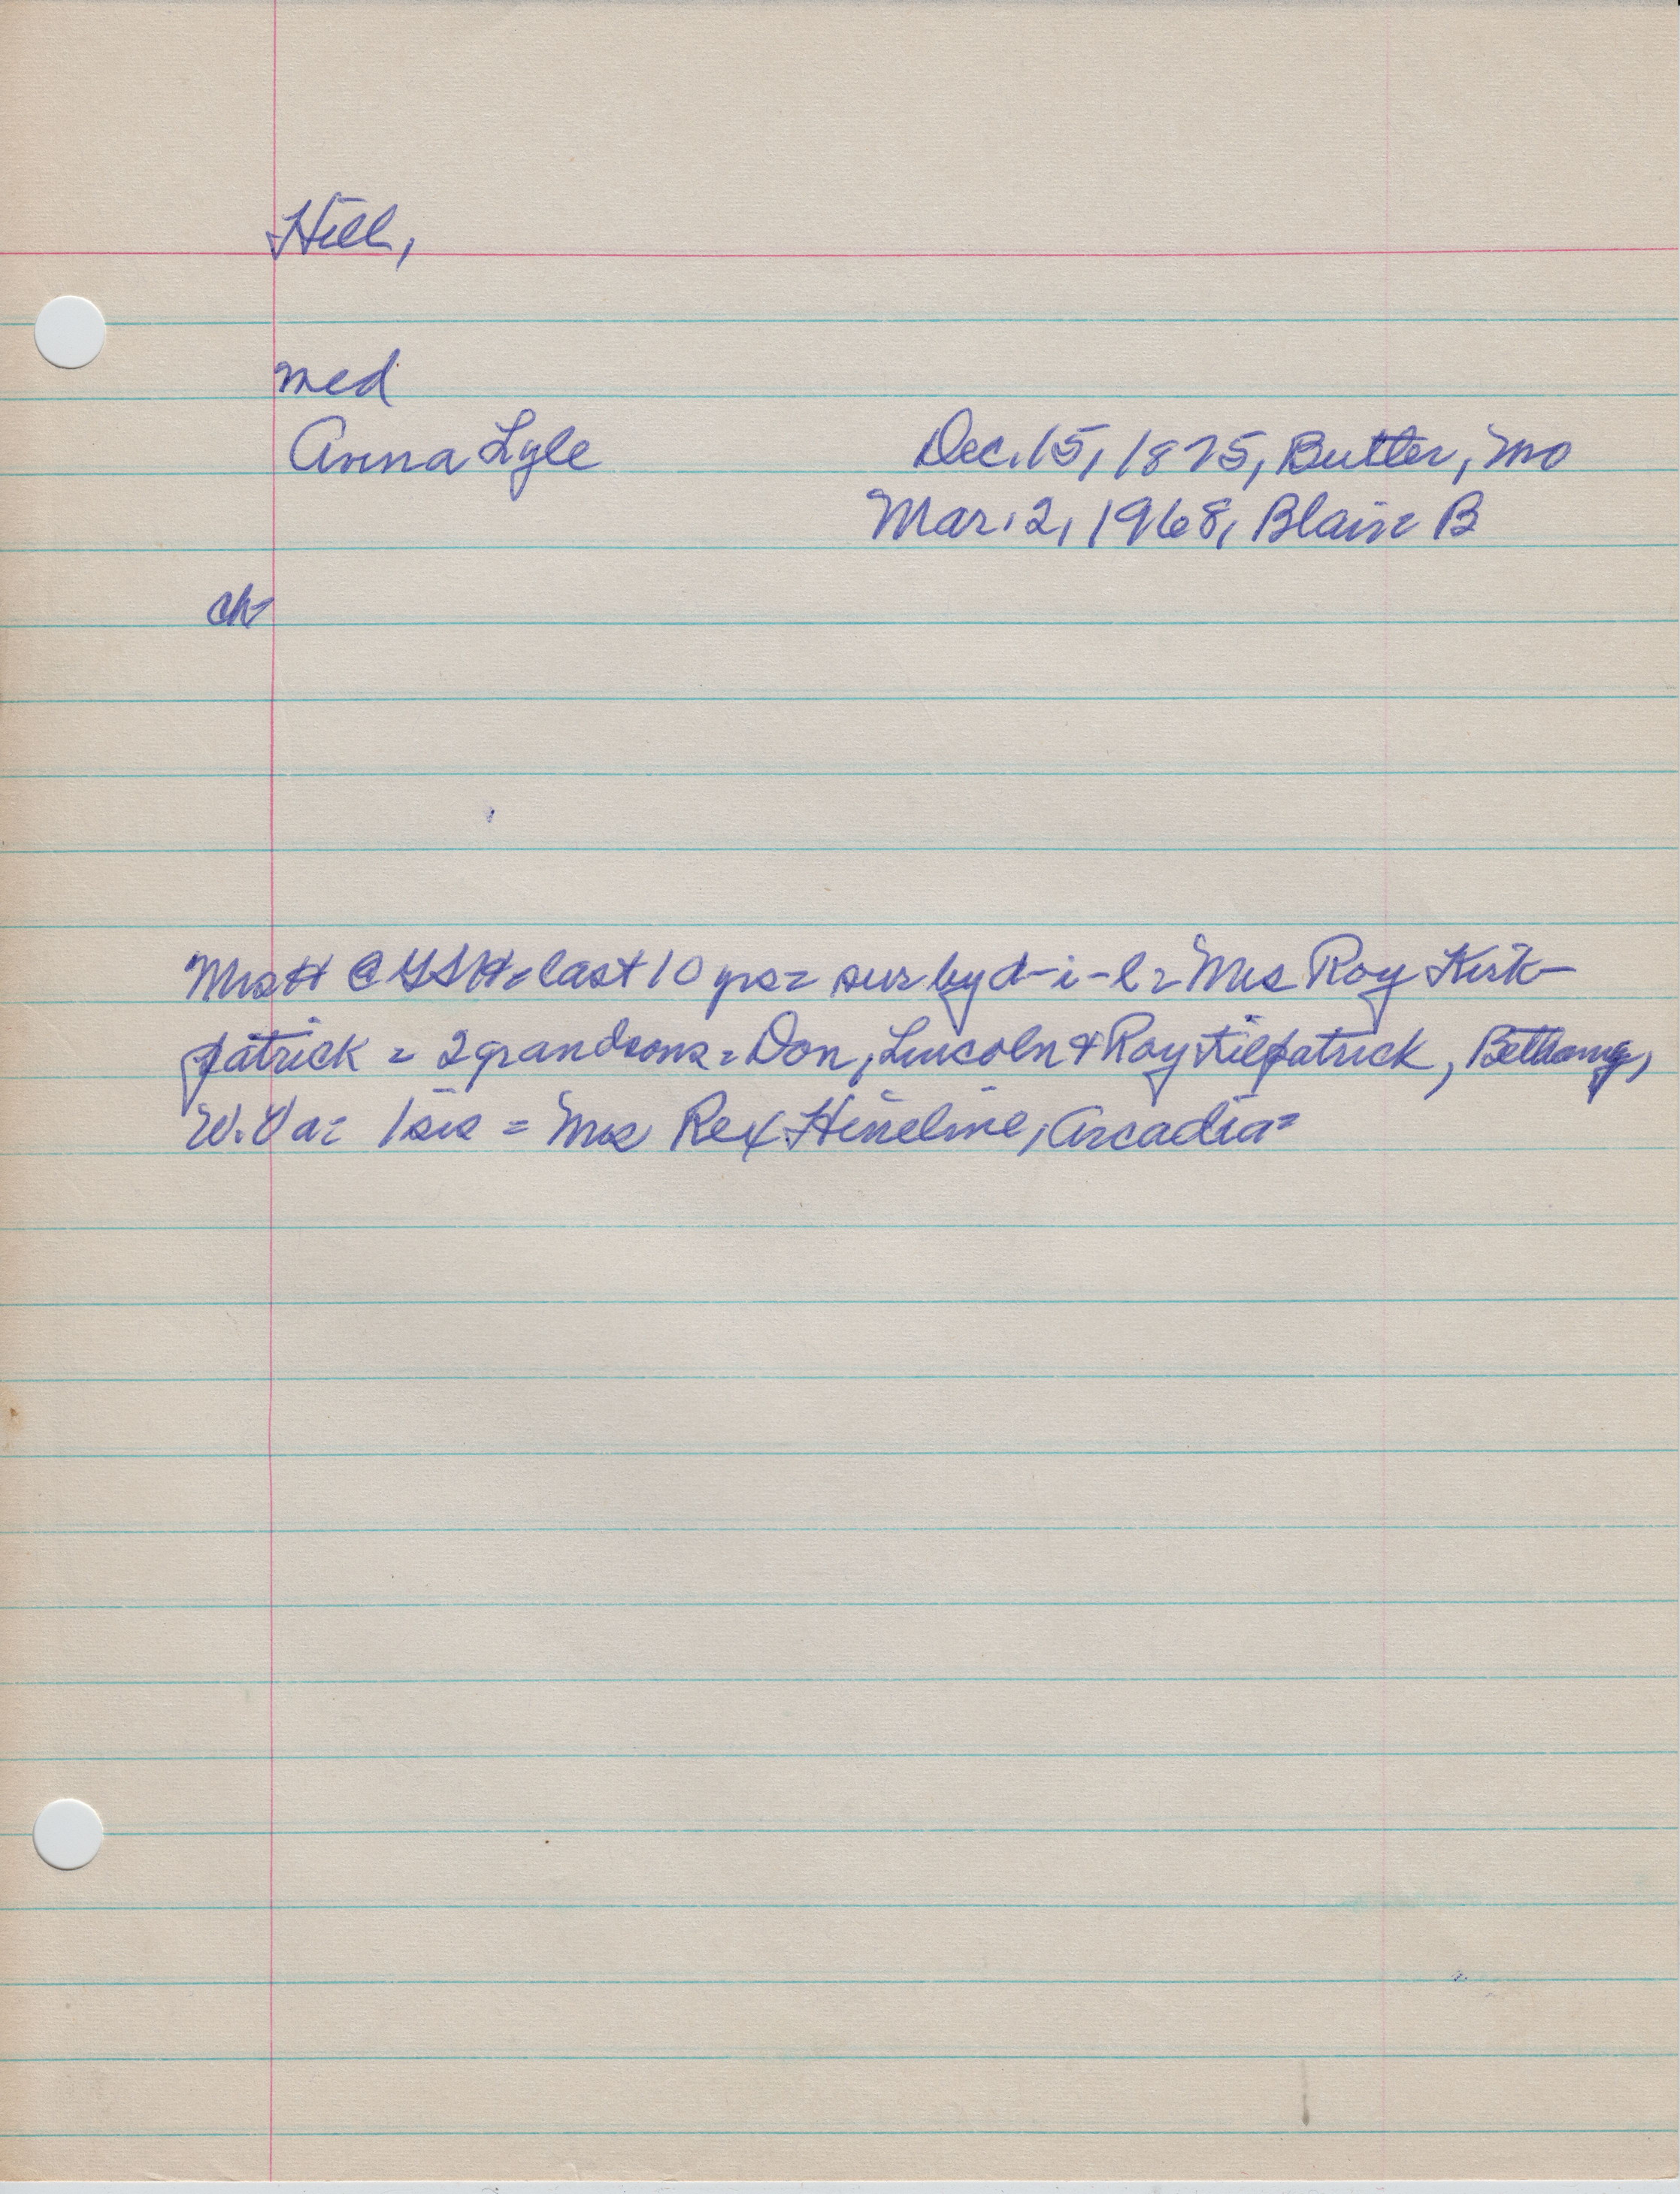 Hill,
med
Anna Lyle Dec. 15, 1875, Butler, Mo
Mar. 2, 1968, Blair B
ch
Mrs H @ GSH = last 10 yrs = sur by d-i-l = Mrs Roy Kirk-
patrick = 2 grandsons = Don, Lincoln & Roy Kilpatrick, Bethany,
W. Va = 1 sis = Mrs Rex Hineline, Arcadia =